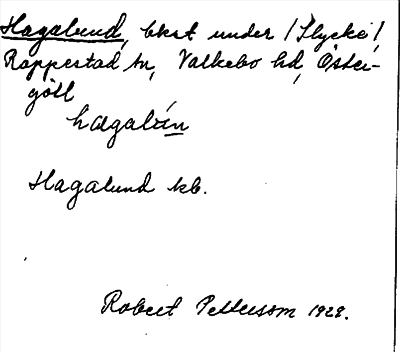 Hagalund, bkst under /Slycke/
Rappestad sn, Valkebo hd, Öster-
götl
hagalún
Hagalund kb.
Robert Pettersson 1928.